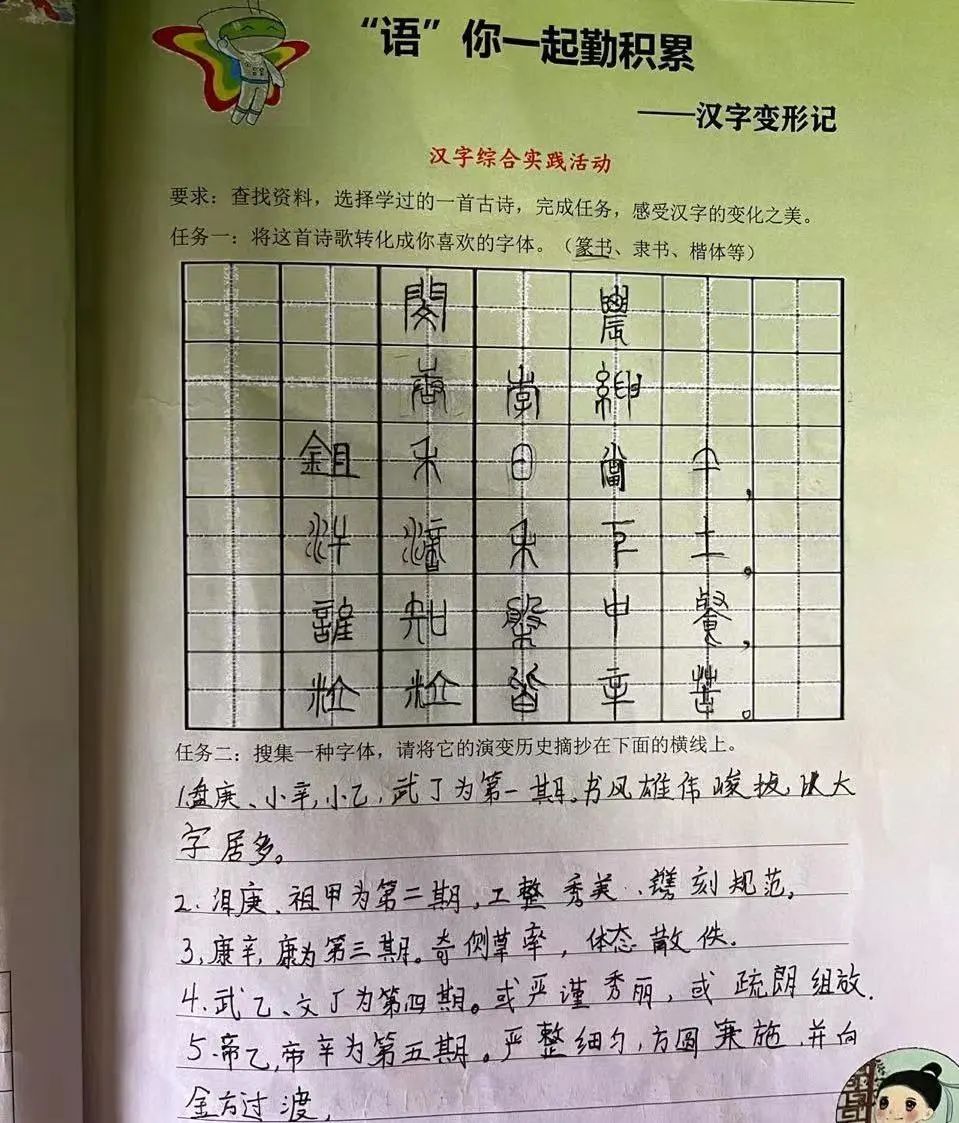 “语”你一起勤积累
——汉字变形记
汉字综合实践活动
要求：查找资料，选择学过的一首古诗，完成任务，感受汉字的变化之美。
任务一：将这首诗歌转化成你喜欢的字体。（篆书、隶书、楷体等）
閔 農
唐 李 紳
鉏禾日當午，
汗滴禾下土。
誰知盤中餐，
粒粒皆辛苦。
任务二：搜集一种字体，请将它的演变历史摘抄在下面的横线上。
1.盘庚、小辛，小乙，武丁为第一期。书风雄伟峻拔，以大
字居多。
2.沮庚、祖甲为第二期，工整秀美、镌刻规范。
3,康辛，康为第三期。奇侧草率，体态散佚。
4.武乙、文丁为第四期。或严谨秀丽，或疏朗组放.
5.帝乙，帝辛为第五期。严整细匀，方圆兼施，并向
金方过渡，